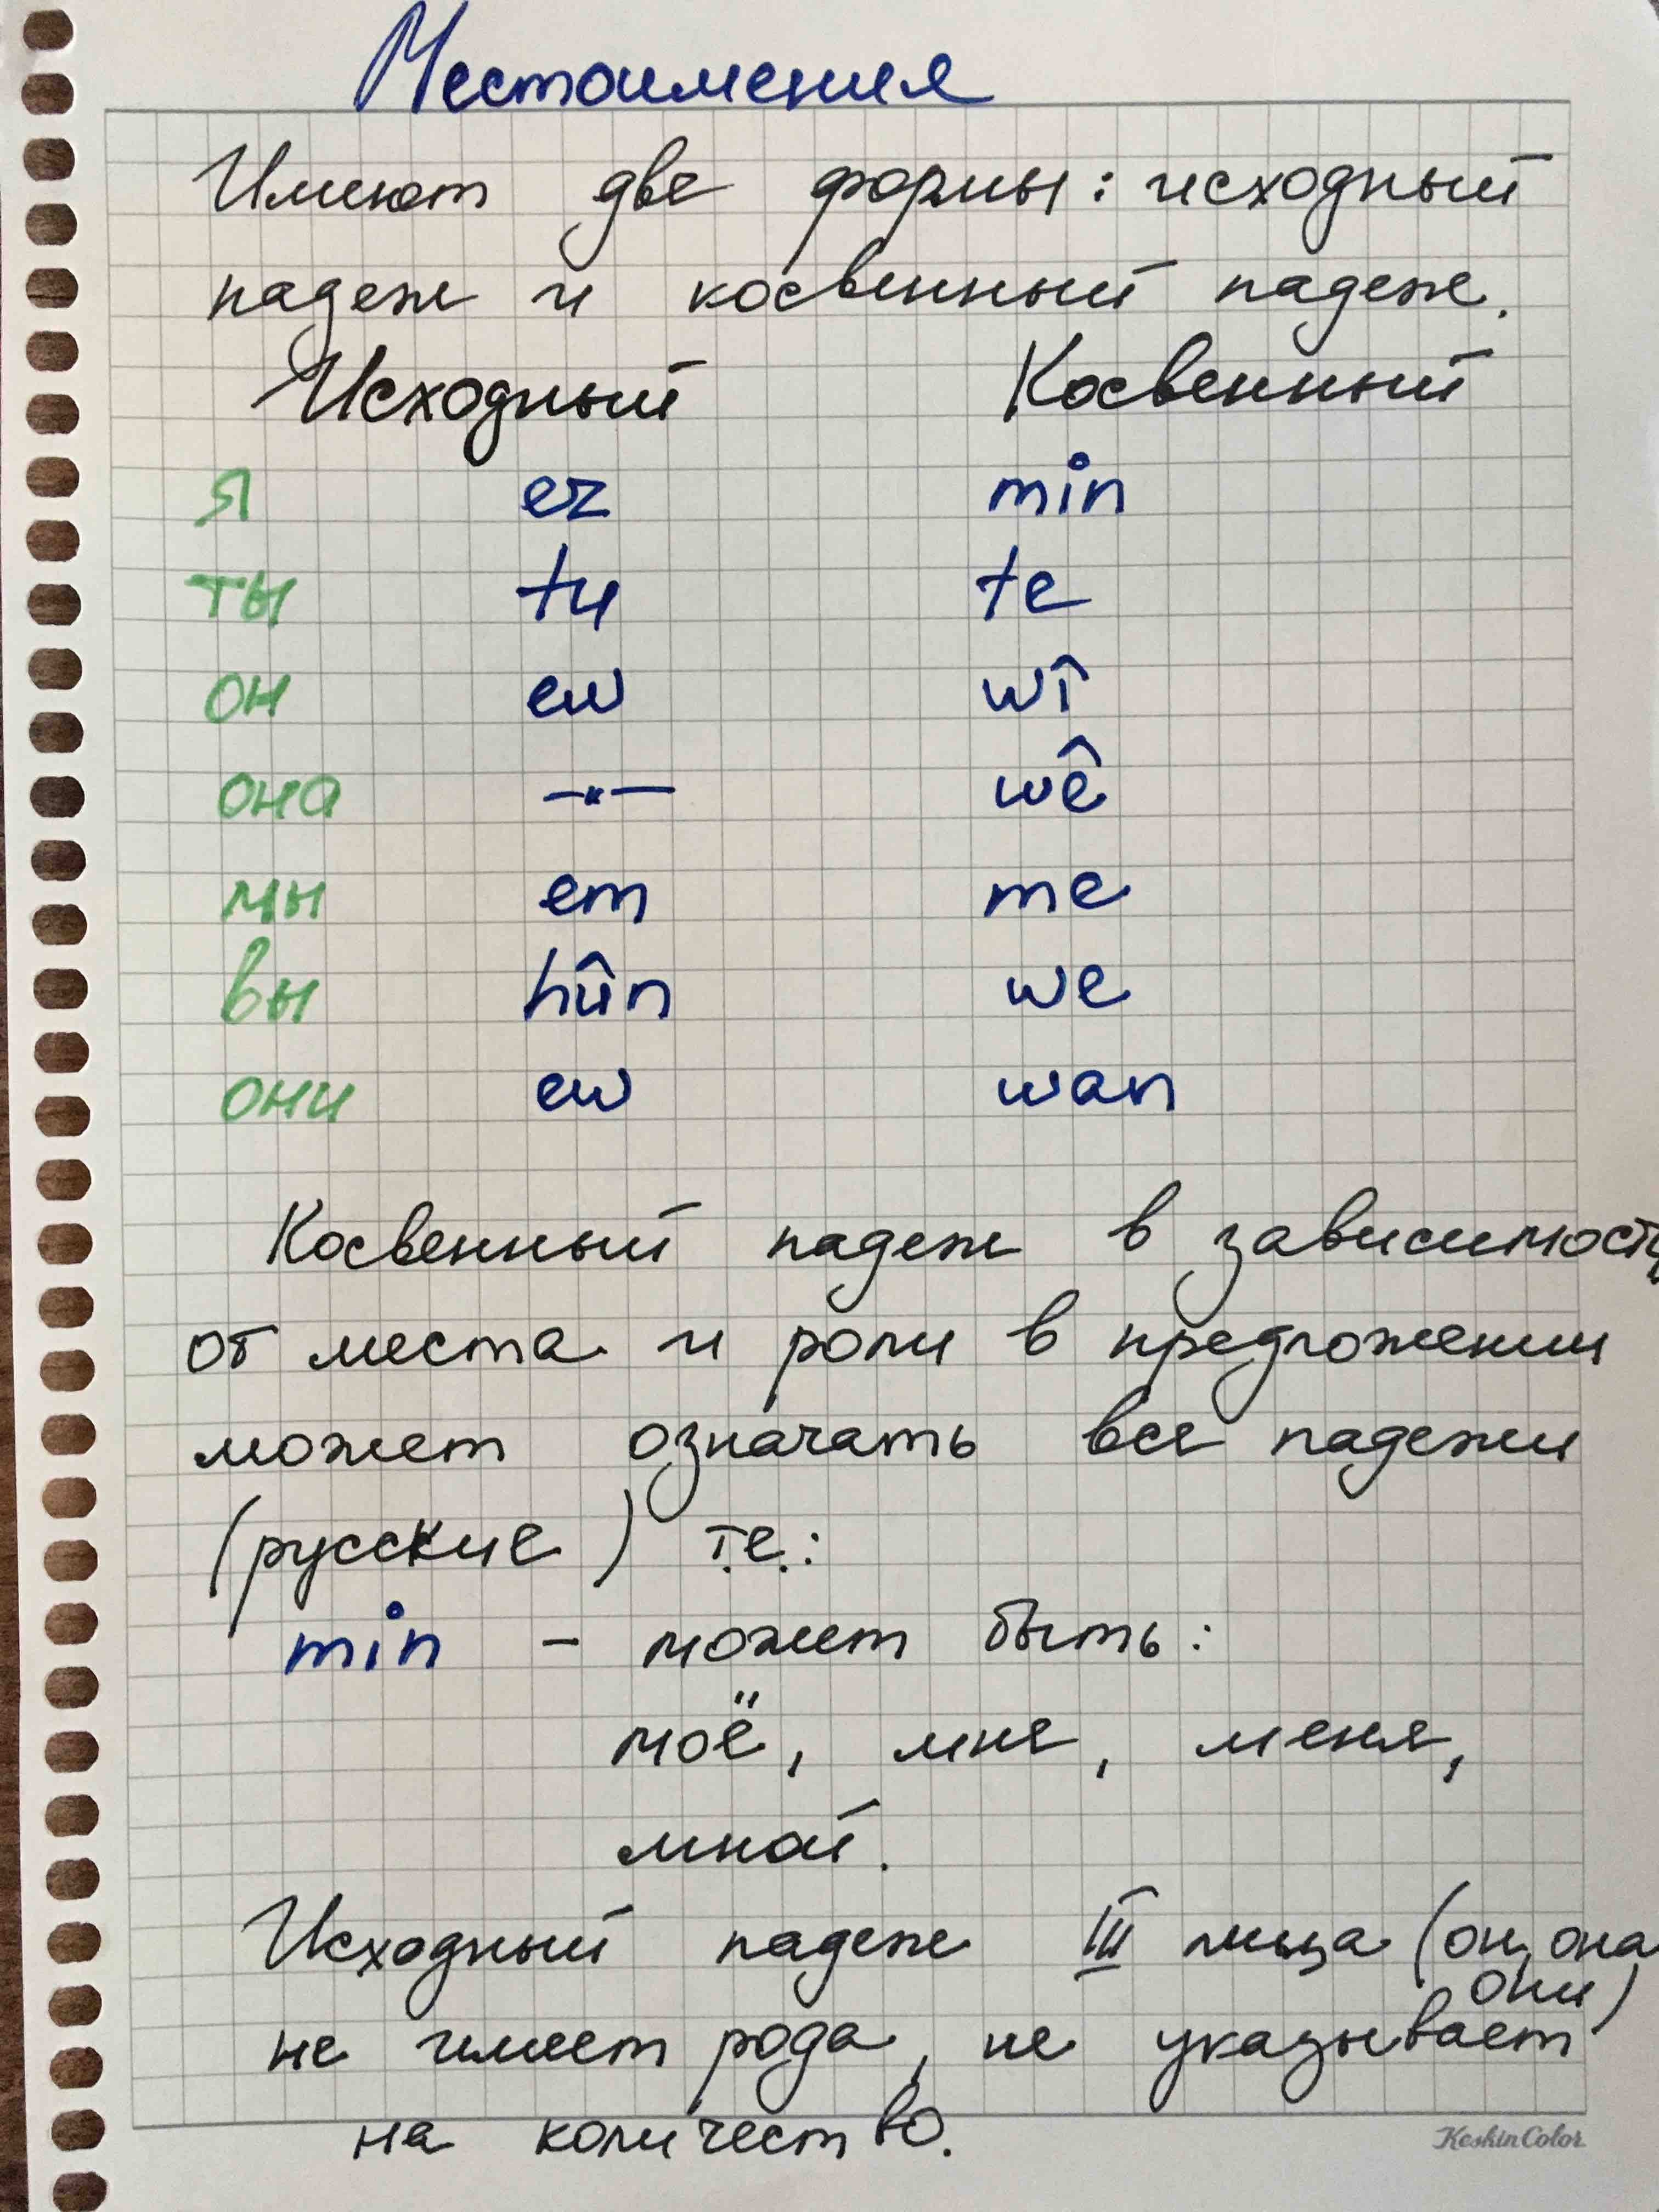 Местоимения
Имеют две формы: исходный
падеж и косвенный падеж.
Исходный Косвенный
я ez min
ты tu te
он ew wî
она —"— wê
мы em me
вы hûn we
они ew wan
Косвенный падеж в зависимости
от места и роли в предложении
может означать все падежи
(русские) т.е.:
min - может быть:
моё, мне, меня,
мной.
Исходный падеж III лица (он, она
они)
не имеет рода, не указывает
на количество.
KeskinColor